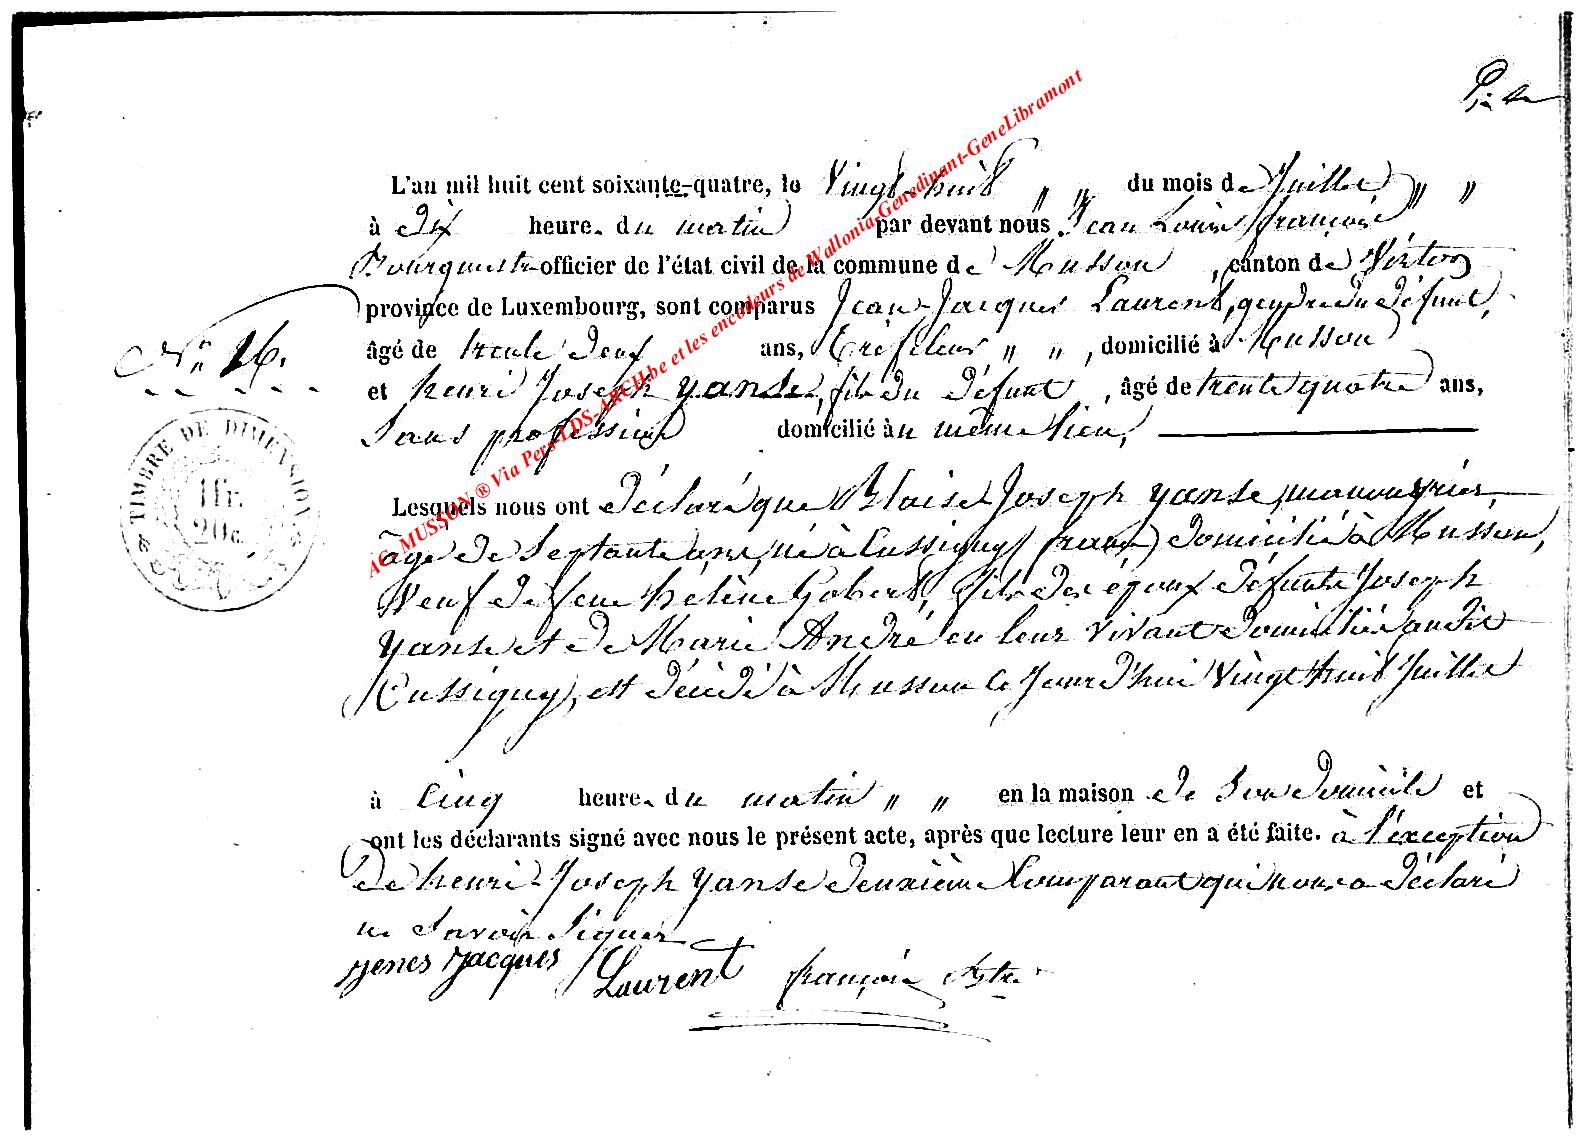 L'an mil huit cent soixante-quatre, le Vingt-huit " " du mois de Juillet " "
à dix heure. du matin par devant nous Jean Louis françois
Bourgmestre officier de l'état civil de la commune de Musson, canton de Virton
province de Luxembourg, sont comparus Jean-Jacques Laurent, gendre du défunt,
âgé de trente neuf ans, Tréfileur " ", domicilié à Musson
N° 26.
et henri Joseph Yanse, fils du défunt, âgé de trente quatre ans,
Sans profession domicilié au même lieu,
TIMBRE DE DIMENSION
1 fr.
20 c.
Lesquels nous ont déclaré que Blaise Joseph Yanse, manouvrier,
âgé de Septante ans, né à Cussigny (france) domicilié à Musson,
Veuf de feue hélène Gobert, fils des époux défunts Joseph
Yanse et de Marie André en leur vivant domiciliés audit
Cussigny, est décédé à Musson ce Jourd'hui Vingt huit Juillet
à Cinq heure. du matin " " en la maison de Son domicile et
ont les déclarants signé avec nous le présent acte, après que lecture leur en a été faite. à l'exception
de henri Joseph Yanse deuxième Comparant qui nous a déclaré
ne Savoir Signer
Jacques Laurent françois
AC-MUSSON ® Via Pers-LDS-ARCH.be et les encodeurs de Wallonia-Genedinant-GeneLibramont